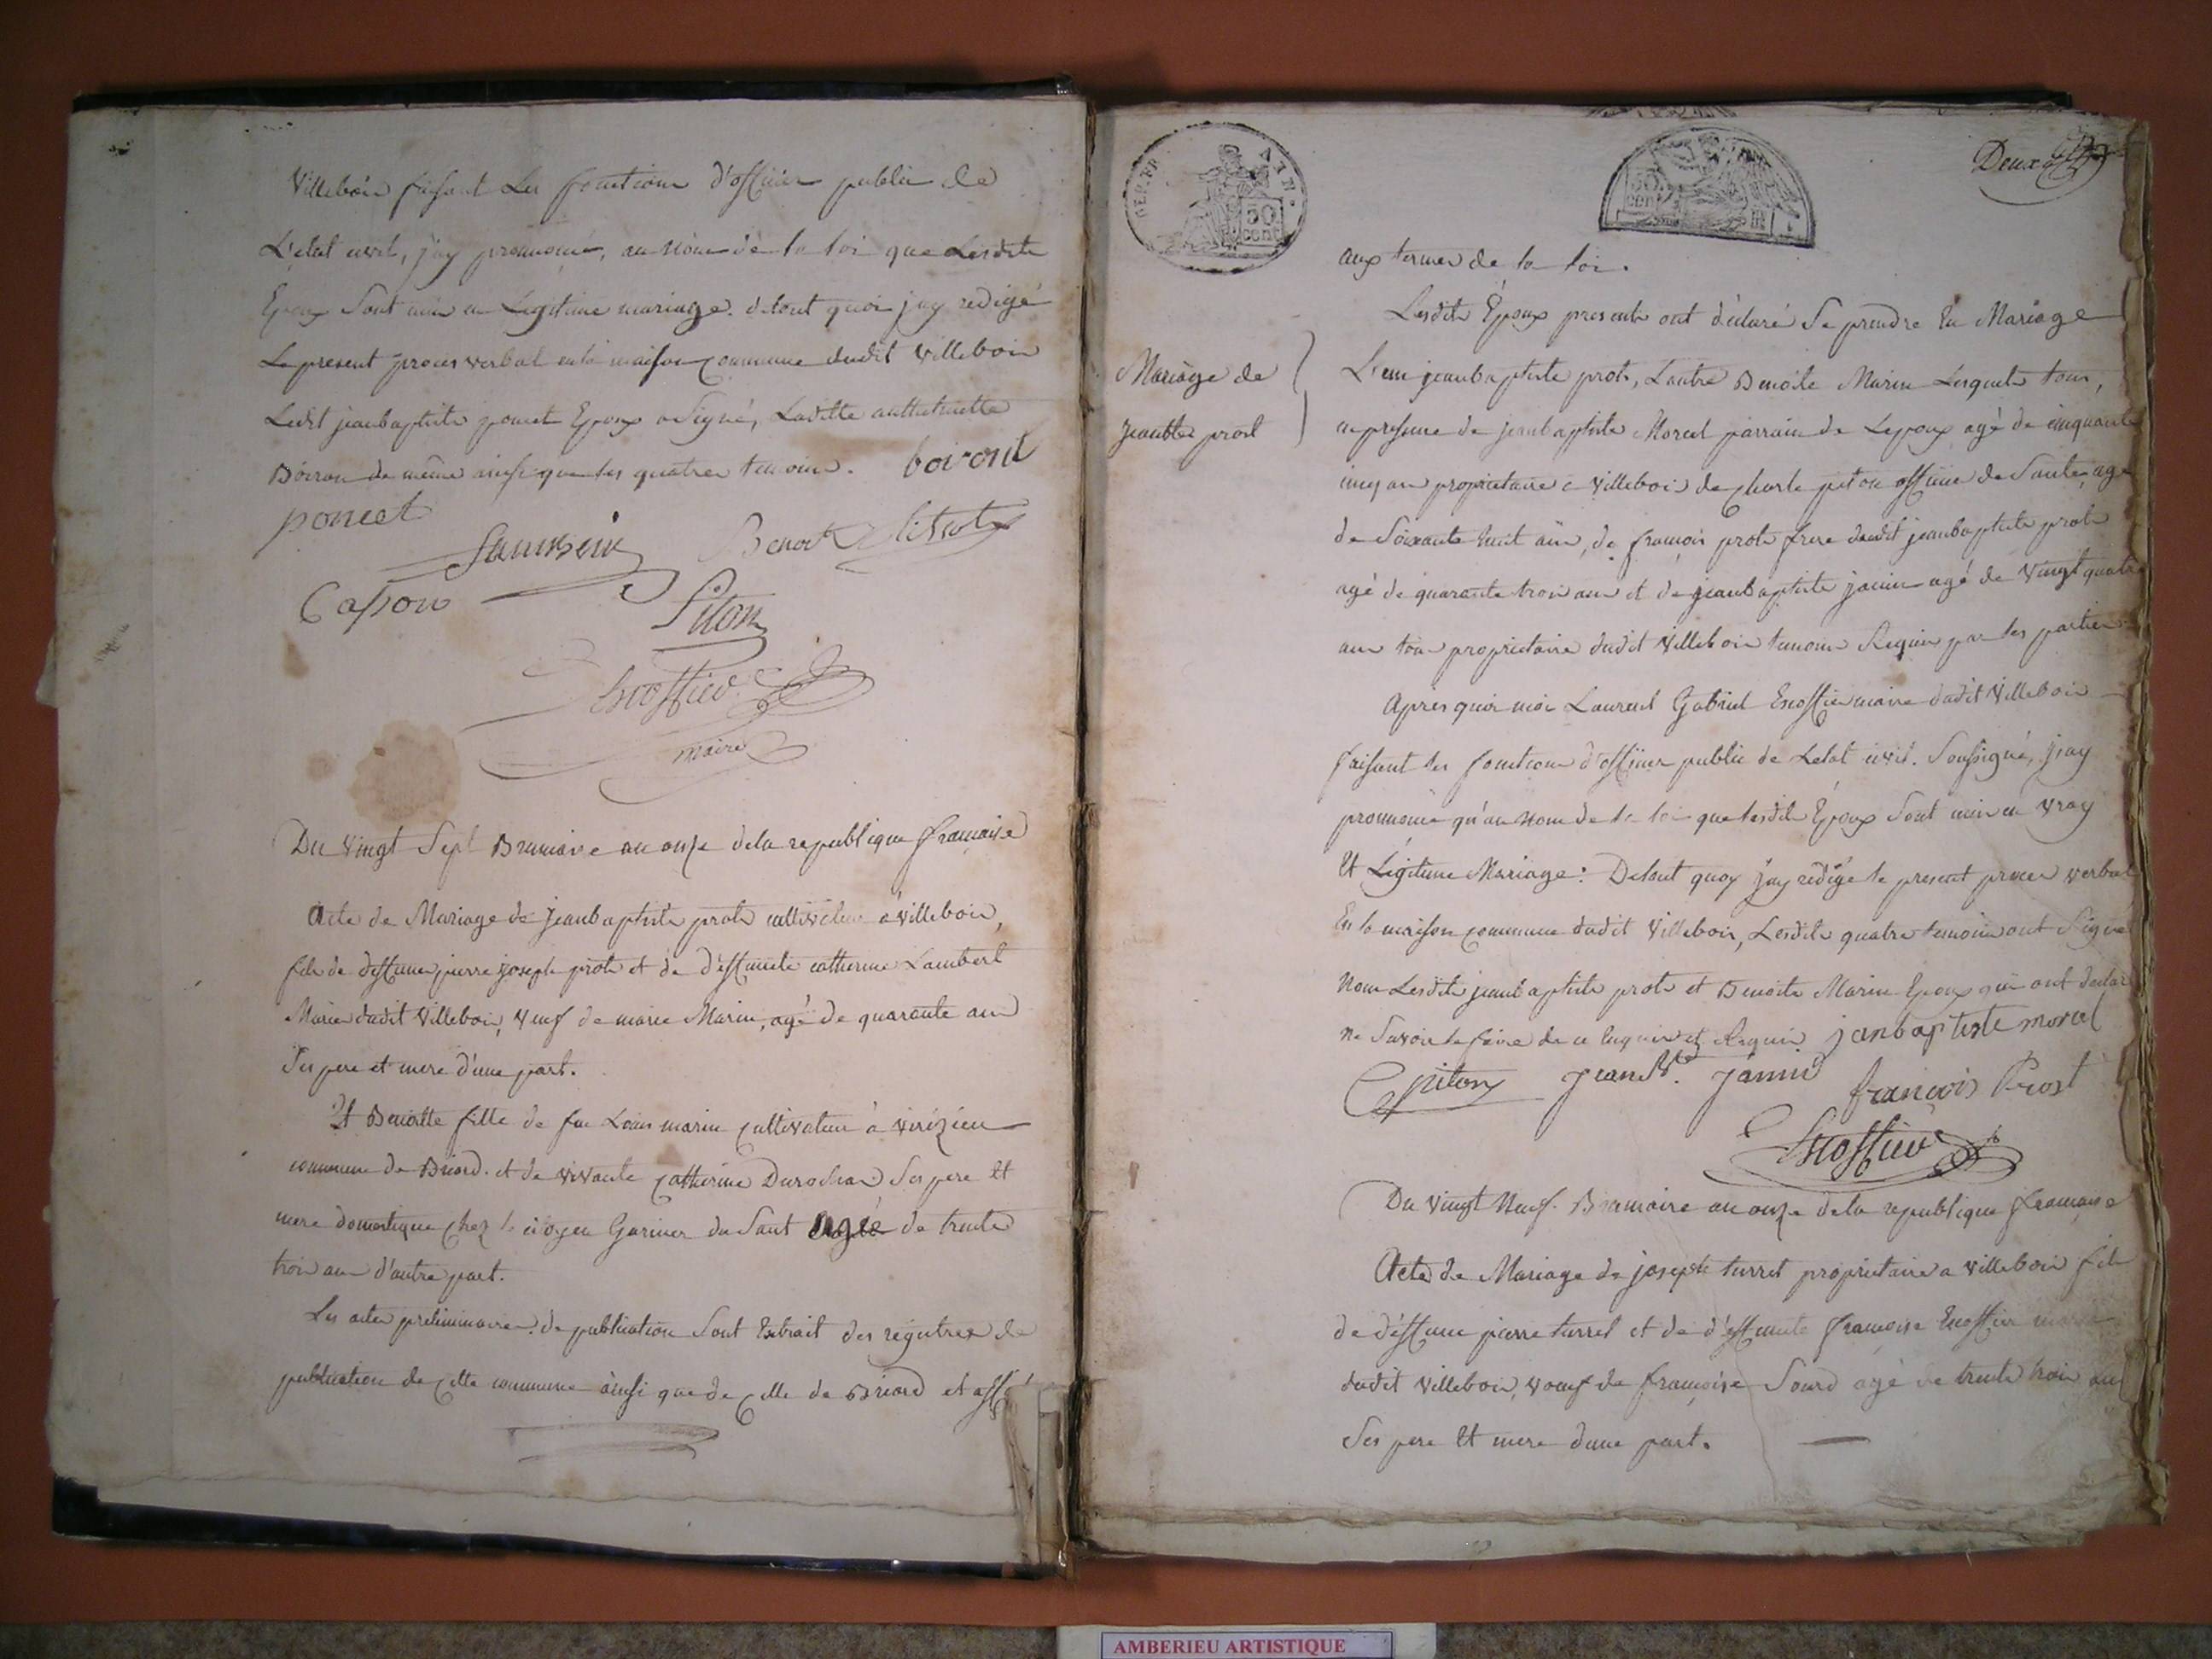 Villebois faisant Les fonctions d'officier public de
L'etat civil, j'ay prononcé, au nom de la loi que Lesdits
Epoux Sont unis en Legitime mariage. de tout quoi j'ay redigé
Le present proces verbal en la maison commune dudit Villebois
Ledit jeanbaptiste poncet Epoux a Signé, Laditte anthelmette
Boiron de même ainsi que les quatres temoins. boiront
poncet
Benoit
Casson
Piton
Escoffier
maire
Du Vingt Sept Brumaire an onze dela republique francaise
Acte de Mariage de jeanbaptiste prots cultivateur a villebois,
fils de deffunt pierre joseph prots et de d'effunte catherine Lambert
Mariés dudit Villebois, Veuf de marie Marin, agé de quarante ans
Ses pere et mere d'une part.
Et Benoitte fille de feu Louis marin cultivateur à virizieu
commune de Briord. et de vivante catherine Durochas Ses pere Et
mere domestique chez le citoyen Garinier du Saut agée de trente
trois ans d'autre part.
Les actes preliminaires de publication Sont Extrait des registres de
publication de cette commune ainsi que de celle de Briord et affiché
REP. FR. AIN.
50 cent
50 cen
Deux
aux termes de la loi.
Lesdits Époux presents ont déclaré Se prendre En Mariage
Mariage de
jeanbte prost
L'un jeanbaptiste prots, Lautre Benoite Marin Lesquels tous,
en presence de jeanbaptiste Morel parrain de Lepoux agé de cinquante
cinq ans propriétaire a Villebois de charle piton officier de Santé, agé
de Soixante huit ans, de françois prots frere dudit jeanbaptiste prots
agé de quarante trois ans et de jeanbaptiste janin agé de Vingt quatre
ans tous proprietaire dudit Villebois temoins Requis par les parties
Apres quoi moi Laurent Gabriel Escoffier maire dudit Villebois
faisant les fonctions d'officier public de Letat civil. Soussigné, j'ay
prononcé qu'au nom de la loi que lesdits Époux Sont unis en Vray
Et Légitime Mariage: De tout quoy j'ay redigé le present proces verbal
En la maison commune dudit Villebois, Lesdits quatre temoins ont Signé
Non Lesdits jeanbaptiste prots et Benoite Marin Epoux qui ont declaré
ne Savoir le faire de ce Enquis et Requis janbaptiste morel
C piton jean Bte. janin françois Prost
Escoffier
Du Vingt Neuf. Brumaire an onze dela republique francaise
Acte de Mariage de joseph turret proprietaire a villebois fils
de déffunt pierre turret et de d'effunte françoise Escoffier mariés
dudit Villebois, Veuf de françoise Sourd agé de trente trois ans
Ses pere Et mere dune part.
AMBERIEU ARTISTIQUE